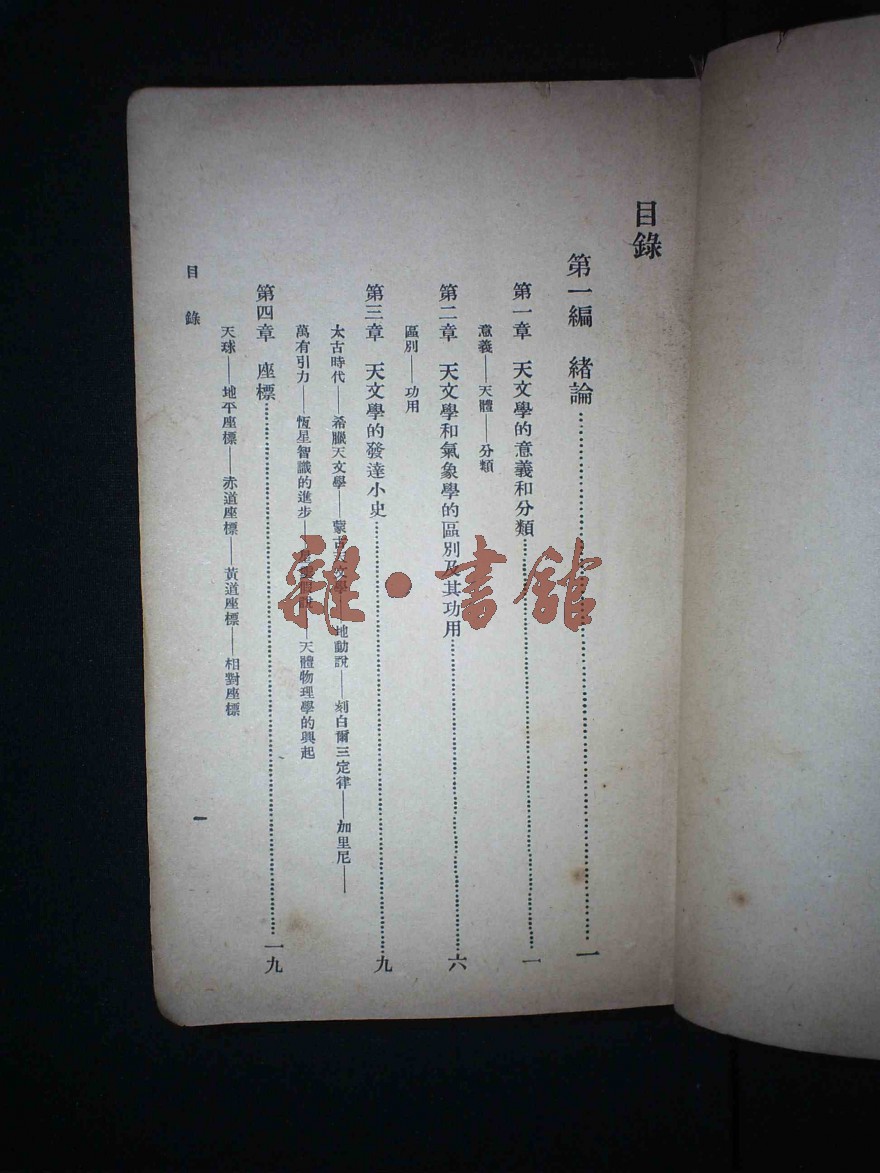 目錄
第一編 緒論……一
第一章 天文學的意義和分類……一
意義——天體——分類
第二章 天文學和氣象學的區別及其功用……六
區別——功用
第三章 天文學的發達小史……九
太古時代——希臘天文學——蒙古天文學——地動說——刻白爾三定律——加里尼——
萬有引力——恆星智識的進步——說——天體物理學的興起
第四章 座標……一九
天球——地平座標——赤道座標——黃道座標——相對座標
目錄
一
雜·書館